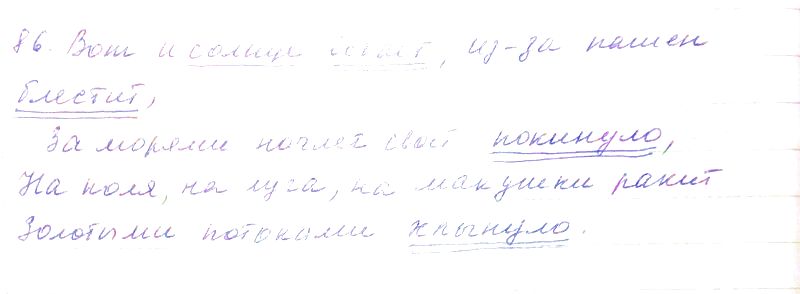 86. Вот и солнце встаёт, из-за пашен
блестит,
За морями ночлег свой покинуло,
На поля, на луга, на макушки ракит
Золотыми потоками хлынуло.